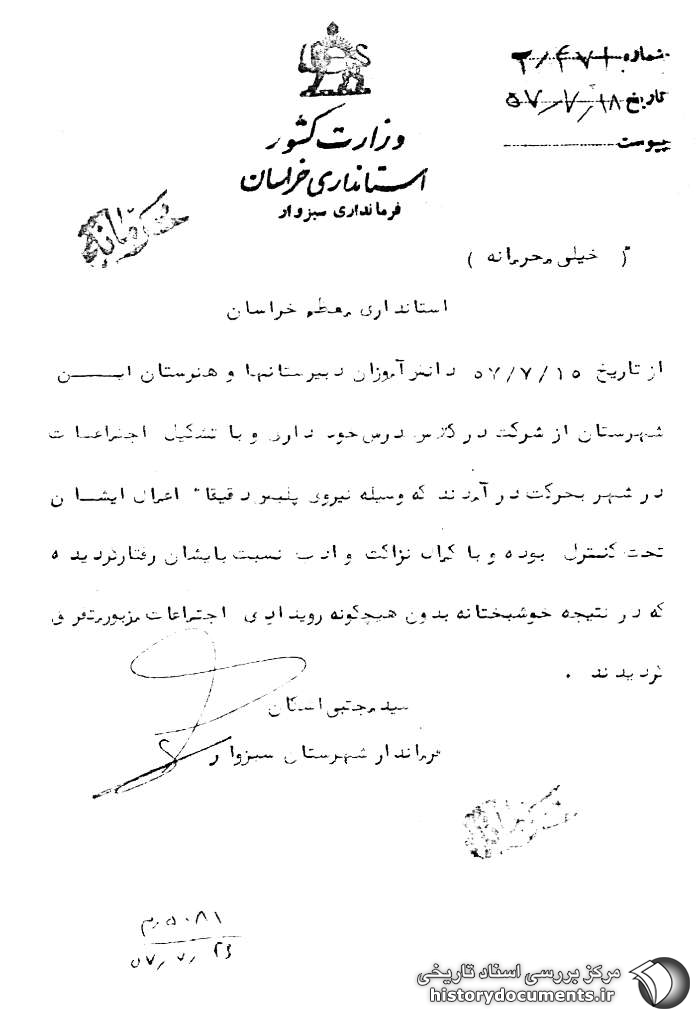 شماره ۲/۴۷۱
تاریخ ۵۷/۷/۱۸
پیوست
وزارت کشور
استانداری خراسان
فرمانداری سبزوار
محرمانه
( خیلی محرمانه )
استانداری معظم خراسان
از تاریخ ۵۷/۷/۱۵ دانش‌آموزان دبیرستانها و هنرستان ایـــن
شهرستان از شرکت در کلاس درس خود داری و با تشکیل اجتماعات
در شهر بحرکت در آمدند که وسیله نیروی پلیس دقیقا" اعمال ایشان
تحت کنترل بوده و با کمال نزاکت و ادب نسبت بایشان رفتار گردیده
که در نتیجه خوشبختانه بدون هیچگونه رویدادی اجتماعات مزبور متفرق
گردیدند .
سید مجتبی
فرماندار شهرستان سبزوار
محرمانه
۵۰۸۱/م
۵۷/۷/۲۶
مرکز بررسی اسناد تاریخی
historydocuments.ir